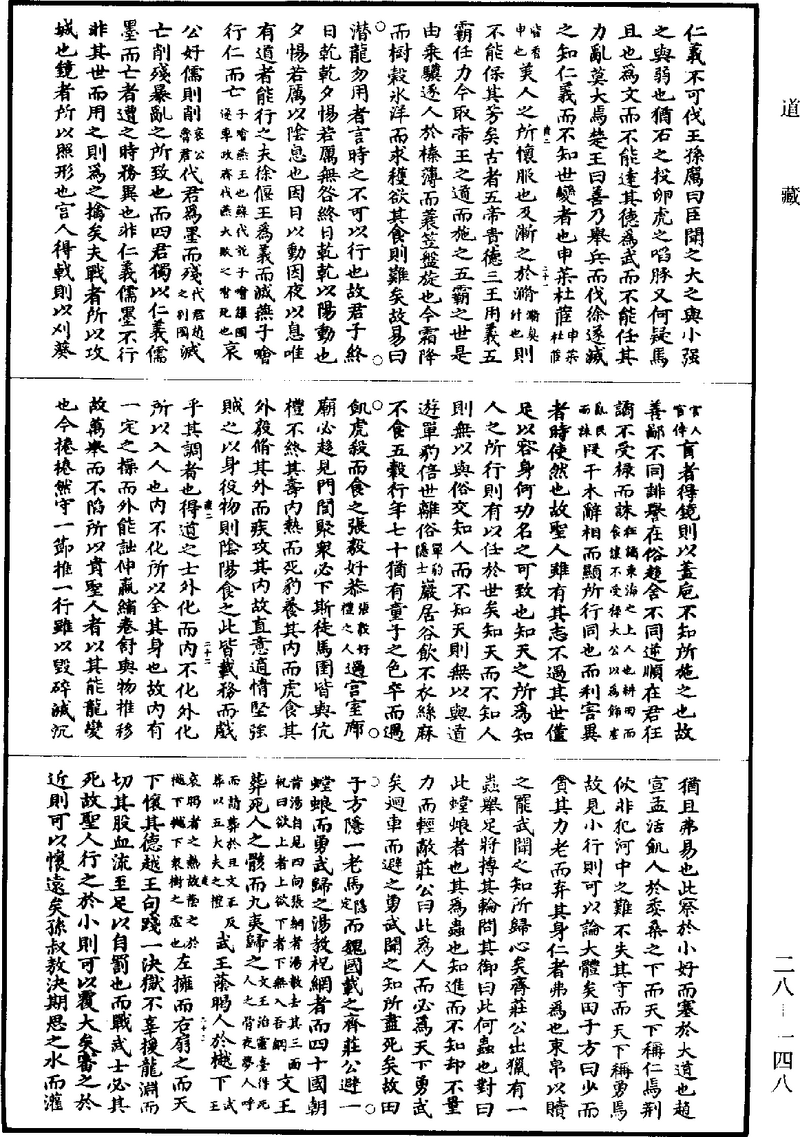 道藏
仁義不可伐王孫厲曰臣聞之大之與小强
之與弱也猶石之投卵虎之啗豚又何疑焉
且也為文而不能達其德為武而不能任其
力亂莫大焉楚王曰善乃舉兵而伐徐遂滅
之知仁義而不知世變者也申茮杜茝申茮杜茝
皆香草也美人之所懷服也及漸之於滫滫臭汁也則
不能保其芳矣古者五帝貴德三王用義五
霸任力今取帝王之道而施之五霸之世是
由乘驥逐人於榛薄而蓑笠盤旋也今霜降
而樹穀氷泮而求穫欲其食則難矣故易曰
潛龍勿用者言時之不可以行也故君子終
日乾乾夕惕若厲無咎終日乾乾以陽動也
夕惕若厲以陰息也因日以動因夜以息唯
有道者能行之夫徐偃王為義而滅燕子噲
行仁而亡子噲燕王也蘇代說子噲讓國遂專政齊伐燕大敗之噲死也哀
公好儒則削哀公魯君代君為墨而殘代君趙之別國滅
亡削殘暴亂之所致也而四君獨以仁義儒
墨而亡者遭之時務異也非仁義儒墨不行
非其世而用之則為之擒矣夫戰者所以攻
城也鏡者所以照形也宮人得戟則以刈葵
宮人宦侍盲者得鏡則以蓋巵不知所施之也故
善鄙不同誹譽在俗趍舍不同逆順在君狂
譎不受祿而誅狂譎東海之上人也耕田而食讓不受祿太公以為飾虛
亂民而誅段干木辭相而顯所行同也而利害異
者時使然也故聖人雖有其志不遇其世僅
足以容身何功名之可致也知天之所為知
人之所行則有以任於世矣知天而不知人
則無以與俗交知人而不知天則無以與道
遊單豹倍世離俗單豹隱士巖居谷飲不衣絲麻
不食五穀行年七十猶有童子之色卒而遇
飢虎殺而食之張毅好恭張毅好禮之人過宮室廊
廟必趍見門閭聚衆必下斯徒馬圉皆與伉
禮不終其壽內熱而死豹養其內而虎食其
外毅脩其外而疾攻其內故直意適情堅強
賊之以身役物則陰陽食之此皆載務而戲
乎其調者也得道之士外化而內不化外化
所以入人也內不化所以全其身也故內有
一定之操而外能詘伸贏縮卷舒與物推移
故萬舉而不陷所以貴聖人者以其能龍變
也今捲捲然守一節推一行雖以毀碎滅沉
猶且弗易也此察於小好而塞於大道也趙
宣孟活飢人於委桑之下而天下稱仁焉荊
佽非犯河中之難不失其守而天下稱勇焉
故見小行則可以論大體矣田子方曰少而
貪其力老而弃其身仁者弗為也束帛以贖
之罷武聞之知所歸心矣齊莊公出獵有一
蟲舉足將搏其輪問其御曰此何蟲也對曰
此螳蜋者也其為蟲也知進而不知却不量
力而輕敵莊公曰此為人而必為天下勇武
矣迴車而避之勇武聞之知所盡死矣故田
子方隱一老馬隱定而魏國載之齊莊公避一
螳蜋而勇武歸之湯教祝網者而四十國朝
昔湯自見四向張網者湯教去其三面祝曰欲上者上欲下者下無入吾網文王
葬死人之骸而九夷歸之文王治靈臺得死人之骨夜夢人呼
而請葬於旦文王反葬以五大夫之禮武王蔭暍人於樾下武王
哀暍者之熱故蔭之於樾下樾下衆樹之虛也左擁而右扇之而天
下懷其德越王句踐一決獄不辜援龍淵而
切其股血流至足以自罰也而戰武士必其
死故聖人行之於小則可以覆大矣審之於
近則可以懷遠矣孫叔敖決期思之水而灌
二八－一四八